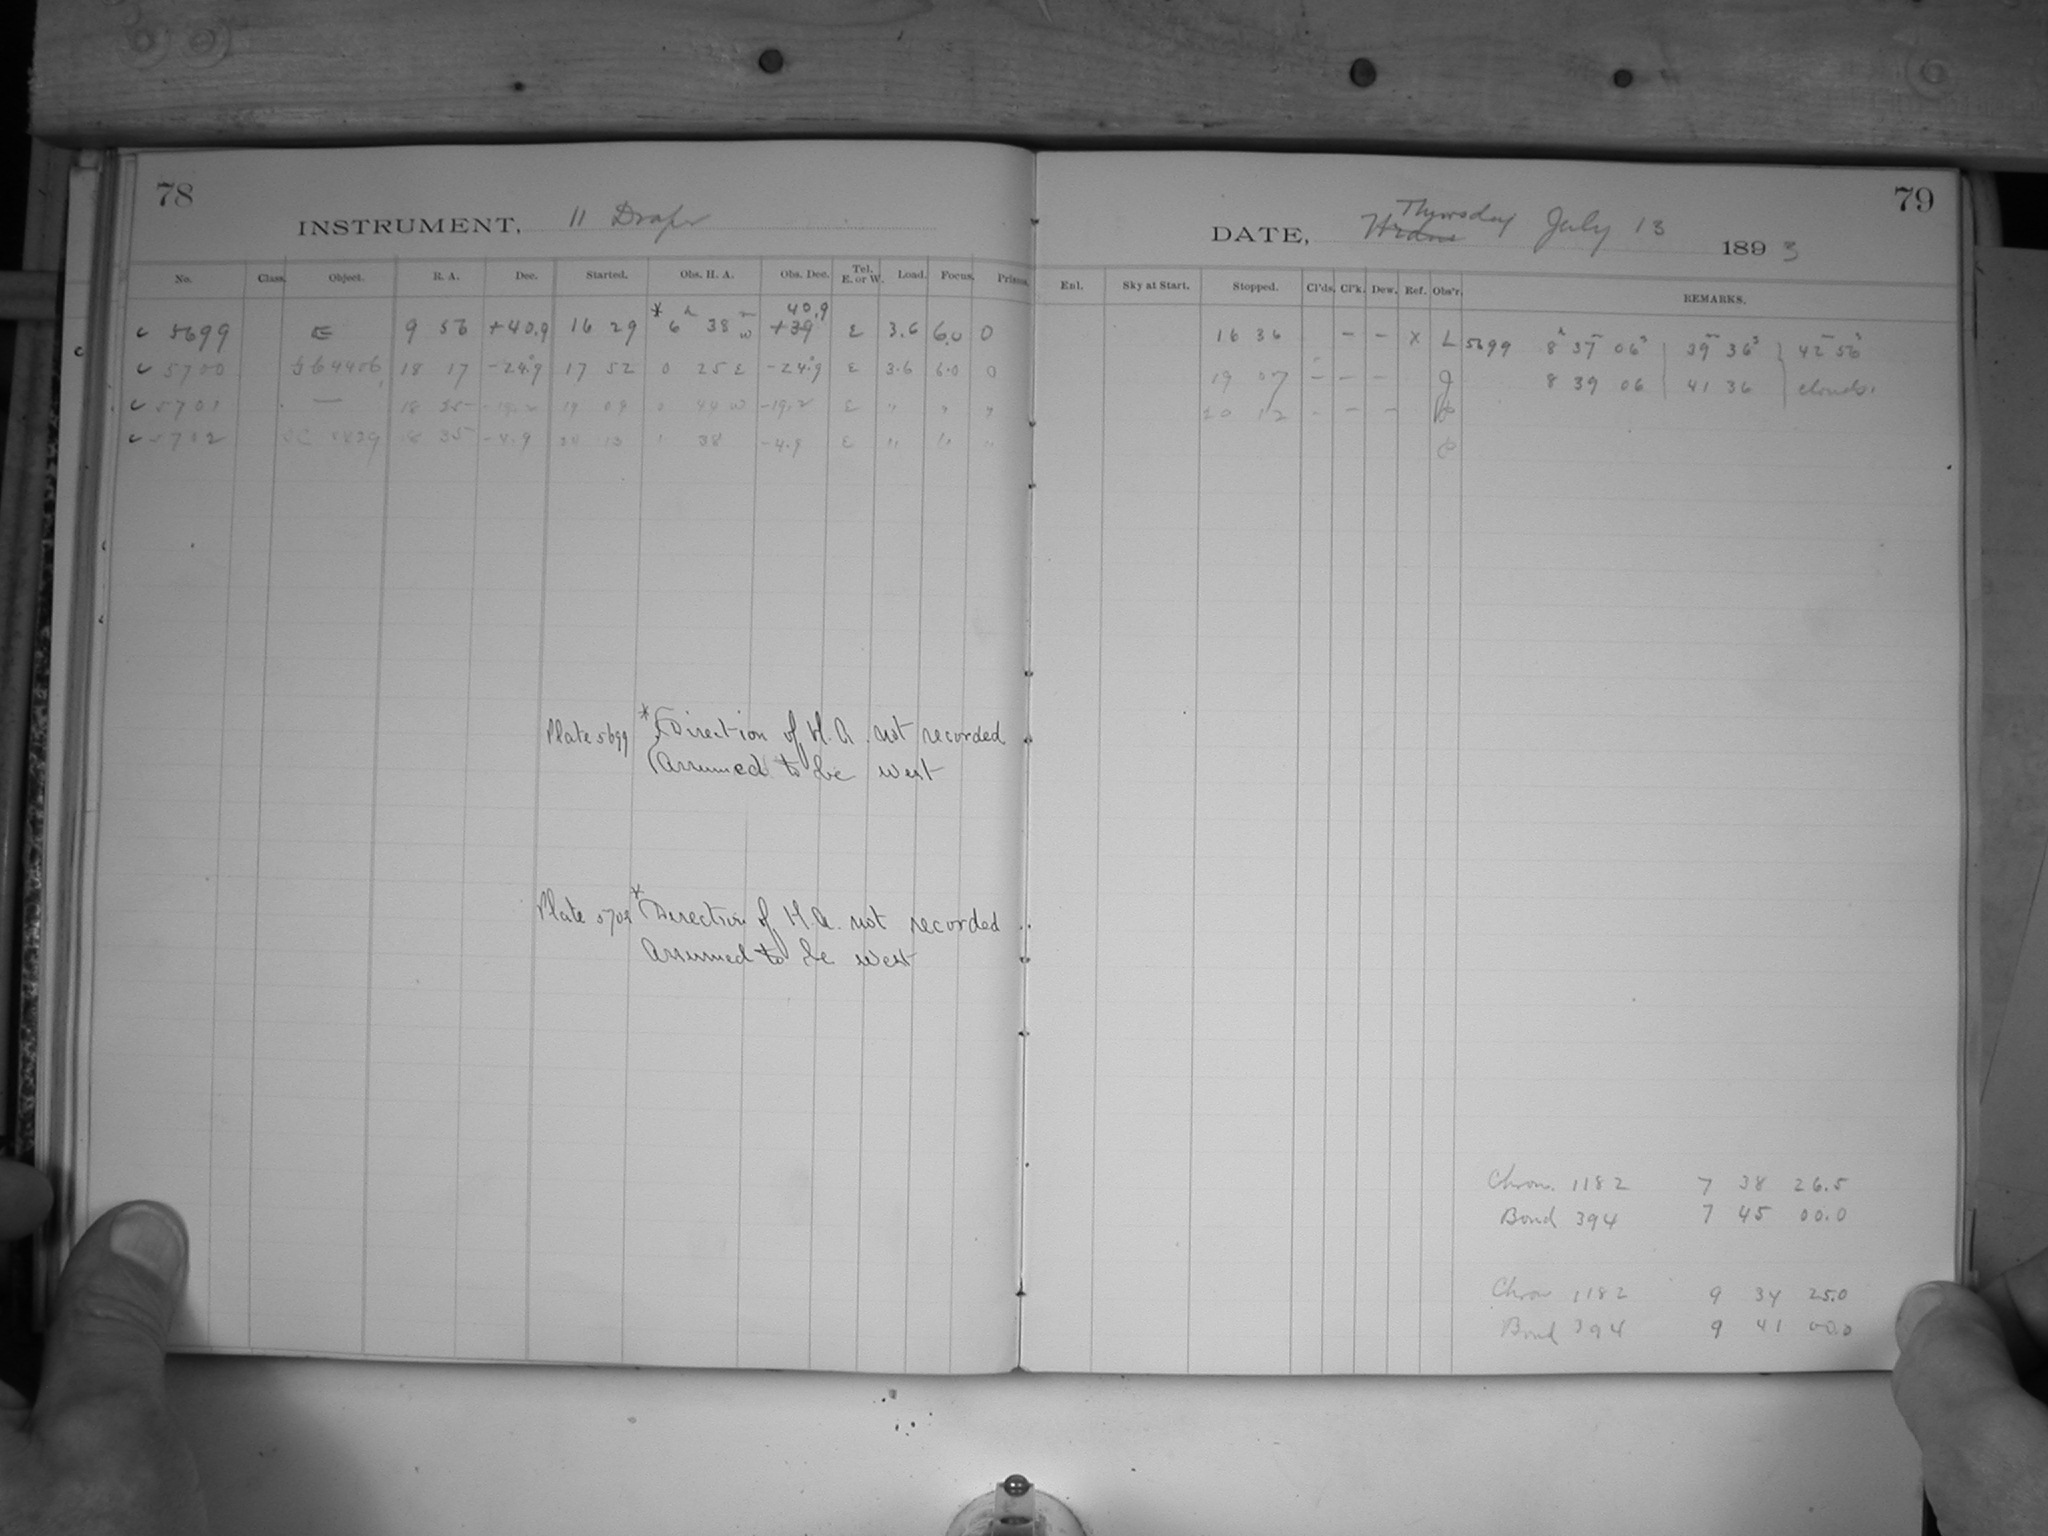 78
INSTRUMENT, 11 Draper
No. Class. Object. R. A. Dec. Started. Obs. H. A. Obs. Dec. Tel. E. or W. Load. Focus. Prisms.
40.9
5699 E 9 56 +40.9 16 29 * 6h 38m w +39 E 3.6 6.0 0
5700 18 17 -24.9 17 52 0 25 E -24.9 E 3.6 6.0 0
5701 — 18 35 -19.2 19 09 0 44 w -19.2 E " " "
5702 18 35 -4.9 20 13 1 38 -4.9 E " " "
Plate 5699 * Direction of H.A. not recorded
Assumed to be west
Plate 5702 * Direction of H.A. not recorded
Assumed to be west
79
Thursday
DATE, July 13 1893
Enl. Sky at Start. Stopped. Cl'ds. Cl'k. Dew. Ref. Obs'r. REMARKS.
16 36 – – X L 5699 8h 37m 06s 39m 36s 42m 56s
19 07 – – – 8 39 06 41 36 clouds.
20 12 - – –
Chron. 1182 7 38 26.5
Bond 394 7 45 00.0
Chron 1182 9 34 25.0
Bond 394 9 41 00.0